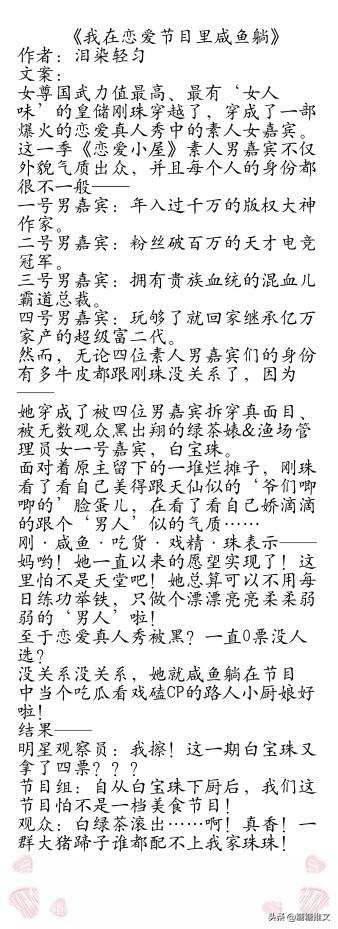 《我在恋爱节目里咸鱼躺》
作者：泪染轻匀
文案：
女尊国武力值最高、最有‘女人
味’的皇储刚珠穿越了，穿成了一部
爆火的恋爱真人秀中的素人女嘉宾。
这一季《恋爱小屋》素人男嘉宾不仅
外貌气质出众，并且每个人的身份都
很不一般——
一号男嘉宾：年入过千万的版权大神
作家。
二号男嘉宾：粉丝破百万的天才电竞
冠军。
三号男嘉宾：拥有贵族血统的混血儿
霸道总裁。
四号男嘉宾：玩够了就回家继承亿万
家产的超级富二代。
然而，无论四位素人男嘉宾们的身份
有多牛皮都跟刚珠没关系了，因为
——
她穿成了被四位男嘉宾拆穿真面目、
被无数观众黑出翔的绿茶婊&渔场管
理员女一号嘉宾，白宝珠。
面对着原主留下的一堆烂摊子，刚珠
看了看自己美得跟天仙似的‘爷们唧
唧的’脸蛋儿，在看了看自己娇滴滴
的跟个‘男人’似的气质……
刚·咸鱼·吃货·戏精·珠表示——
妈哟！她一直以来的愿望实现了！这
里怕不是天堂吧！她总算可以不用每
日练功举铁，只做个漂漂亮亮柔柔弱
弱的‘男人’啦！
至于恋爱真人秀被黑？一直0票没人
选？
没关系没关系，她就咸鱼躺在节目
中当个吃瓜看戏磕CP的路人小厨娘好
啦！
结果——
明星观察员：我擦！这一期白宝珠又
拿了四票？？？
节目组：自从白宝珠下厨后，我们这
节目怕不是一档美食节目！
观众：白绿茶滚出……啊！真香！一
群大猪蹄子谁都配不上我家珠珠！
头条@糖糖推文